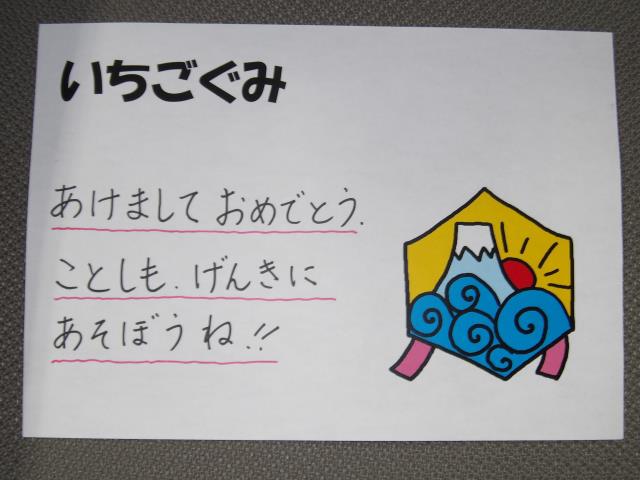 いちごぐみ
あけまして おめでとう.
ことしも. げんきに
あそぼうね!!